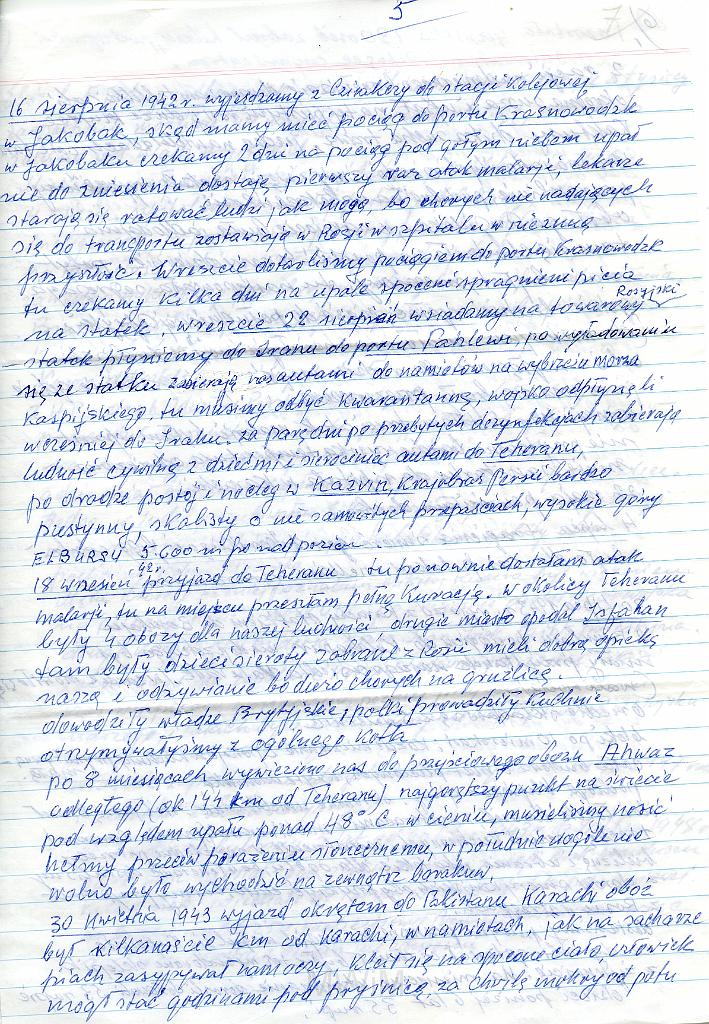 5
16 sierpnia 1942 r. wyjeżdżamy z Czirakczy do stacji kolejowej
w Jakobak, skąd mamy mieć pociąg do portu Krasnowodzk
w Jakobaku czekamy 2 dni na pociąg pod gołym niebem upał
nie do zniesienia dostaję pierwszy raz atak malarji, lekarze
starają się ratować ludzi jak mogą, bo chorych nie nadających
się do transportu zostawiają w Rosji w szpitalu w nieznaną
przyszłość. Wreszcie dotarliśmy pociągiem do portu Krasnowodzk
tu czekamy kilka dni na upale spoceni spragnieni picia
na statek, wreszcie 22 sierpień wsiadamy na towarowy Rosyjski
statek płyniemy do Iranu do portu Pahlewi, po wyładowaniu
się ze statku zabierają nas autami do namiotów na wybrzeżu morza
Kaspijskiego, tu musimy odbyć kwarantannę, wojsko odpłynęli
wcześniej do Iraku. za parę dni po przebytych dezynfekcjach zabierają
ludność cywilną z dziećmi i sierociniec autami do Teheranu,
po drodze postój i nocleg w Kazvin, Krajobraz Persii bardzo
pustynny, skalisty o nie samowitych przepaściach, wysokie góry
ELBURSU 5.600 m ponad poziom.
18 wrzesień 42r. przyjazd do Teheranu tu ponownie dostałam atak
malarji, tu na miejscu przeszłam pełną kurację. w okolicy Teheranu
były 4 obozy dla naszej ludności, drugie miasto opodal Isfahan
tam były dzieci sieroty zabrane z Rosii mieli dobrą opiekę
naszą i odżywianie bo dużo chorych na gruźlicę.
dowodziły władze Brytyjskie, polki prowadziły Kuchnie
otrzymywałyśmy z ogólnego kotła
po 8 miesiącach wywieziono nas do przejściowego obozu Ahwaz
odległego (ok 144 km od Teheranu) najgorętszy punkt na świecie
pod względem upału ponad 48° C w cieniu, musieliśmy nosić
hełmy przeciw porażeniu słonecznemu, w południe wogóle nie
wolno było wychodzić na zewnątrz baraków.
30 kwietnia 1943 wyjazd okrętem do Pakistanu Karachi obóz
był kilkanaście km od Karachi, w namiotach, jak na sacharze
piach zasypywał nam oczy, kleił się na spocone ciało, człowiek
mógł stać godzinami pod prysznicem, za chwilę mokry od potu